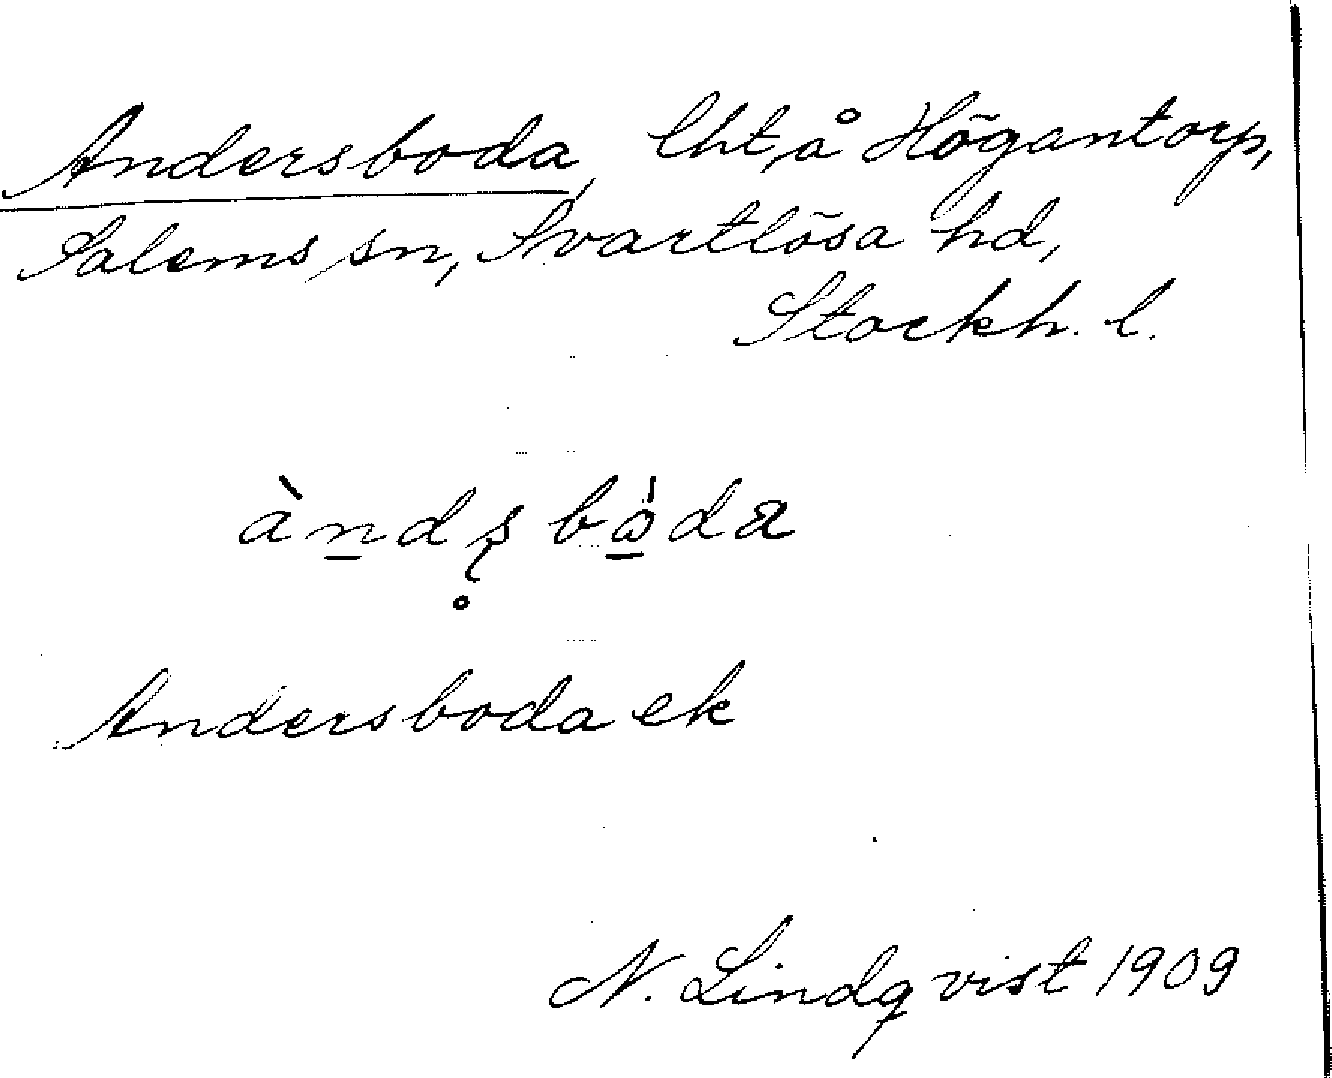 Andersboda, lht, å Högantorp,
Salems sn, Svartlösa hd,
Stockh. l.
àn̲dş̥ bò̲da
Andersboda ek
N. Lindqvist 1909